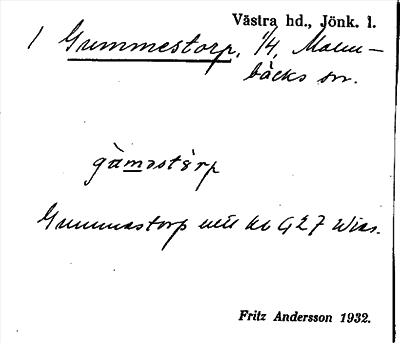 Västra hd., Jönk. l.
1 Gummestorp, 1/4, Malm-
bäcks sn.
gu̇mastȯrp
Gummastorp
Fritz Andersson 1932.